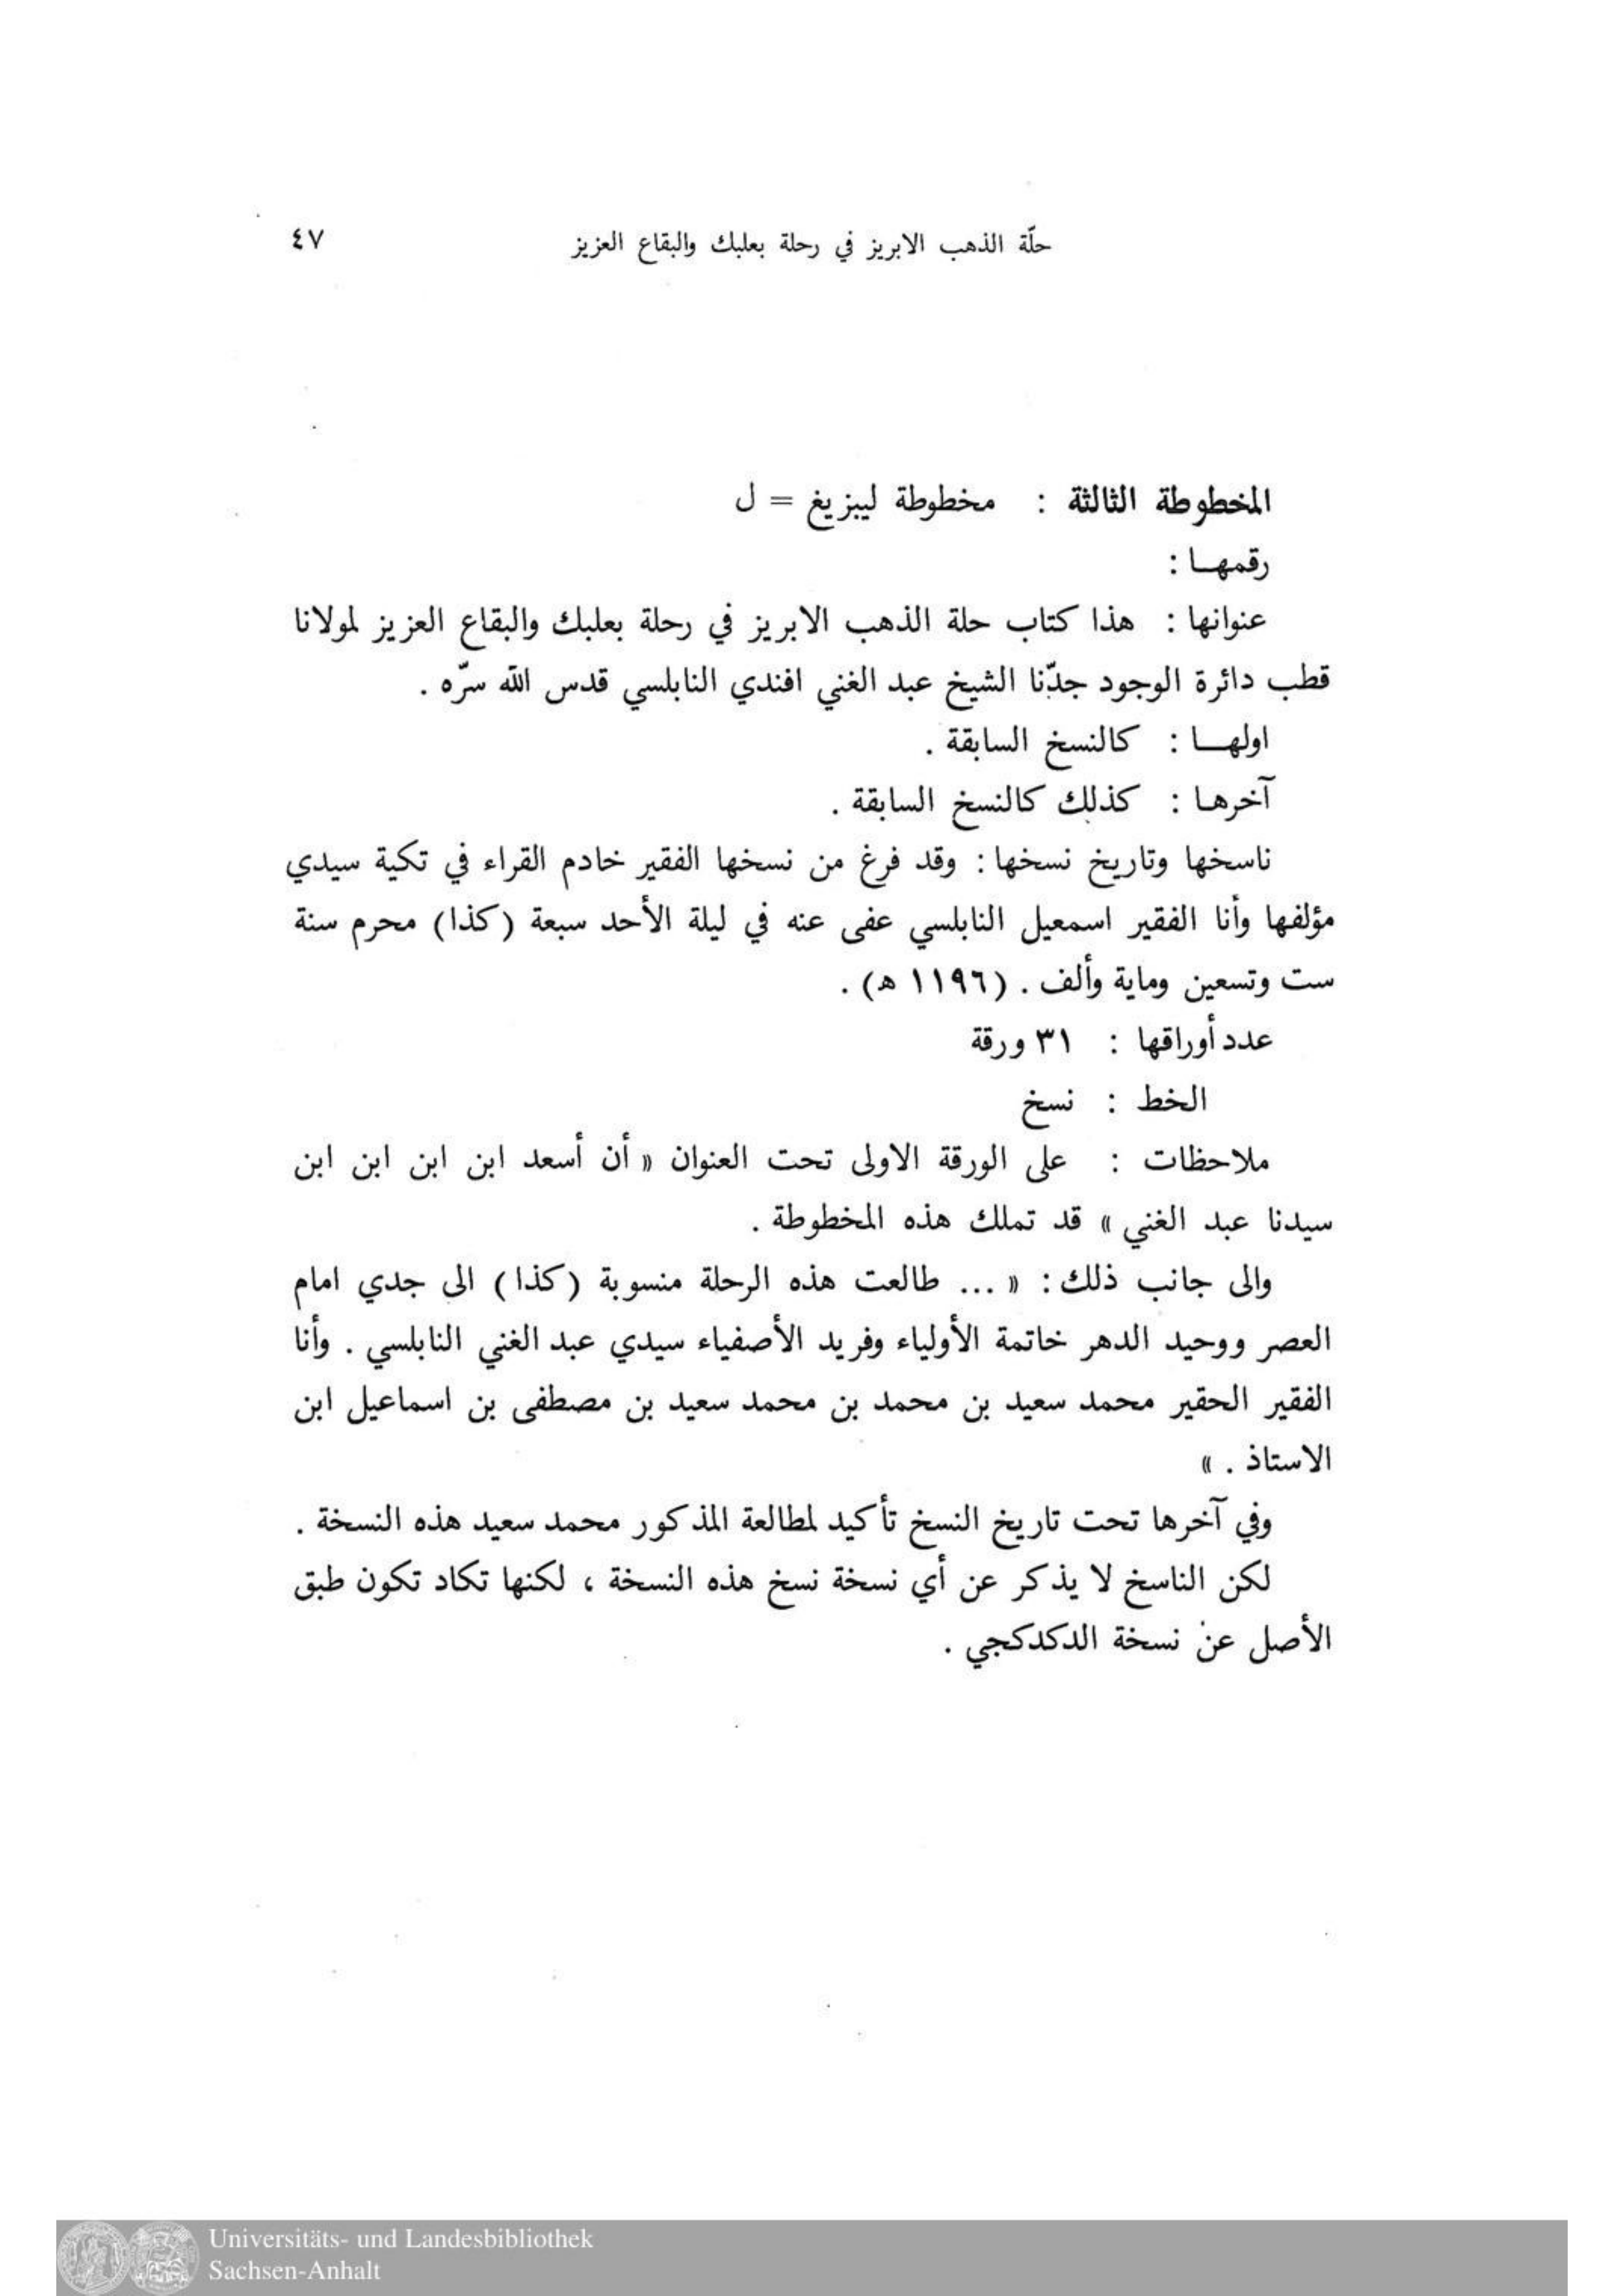 حلّة الذهب الابريز في رحلة بعلبك والبقاع العزيز ٤٧
المخطوطة الثالثة : مخطوطة ليبزيغ = ل
رقمهـا :
عنوانها : هذا كتاب حلة الذهب الابريز في رحلة بعلبك والبقاع العزيز لمولانا
قطب دائرة الوجود جدّنا الشيخ عبد الغني افندي النابلسي قدس الله سرّه .
اولهـا : كالنسخ السابقة .
آخرهـا : كذلك كالنسخ السابقة .
ناسخها وتاريخ نسخها : وقد فرغ من نسخها الفقير خادم القراء في تكية سيدي
مؤلفها وأنا الفقير اسمعيل النابلسي عفى عنه في ليلة الأحد سبعة (كذا) محرم سنة
ست وتسعين وماية وألف . (١١٩٦ ه) .
عدد أوراقها : ٣١ ورقة
الخط : نسخ
ملاحظات : على الورقة الاولى تحت العنوان « أن أسعد ابن ابن ابن ابن
سيدنا عبد الغني » قد تملك هذه المخطوطة .
والى جانب ذلك : « ... طالعت هذه الرحلة منسوبة (كذا) الى جدي امام
العصر ووحيد الدهر خاتمة الأولياء وفريد الأصفياء سيدي عبد الغني النابلسي . وأنا
الفقير الحقير محمد سعيد بن محمد بن محمد سعيد بن مصطفى بن اسماعيل ابن
الاستاذ . »
وفي آخرها تحت تاريخ النسخ تأكيد لمطالعة المذكور محمد سعيد هذه النسخة .
لكن الناسخ لا يذكر عن أي نسخة نسخ هذه النسخة ، لكنها تكاد تكون طبق
الأصل عن نسخة الدكدكجي .
Universitäts- und Landesbibliothek
Sachsen-Anhalt